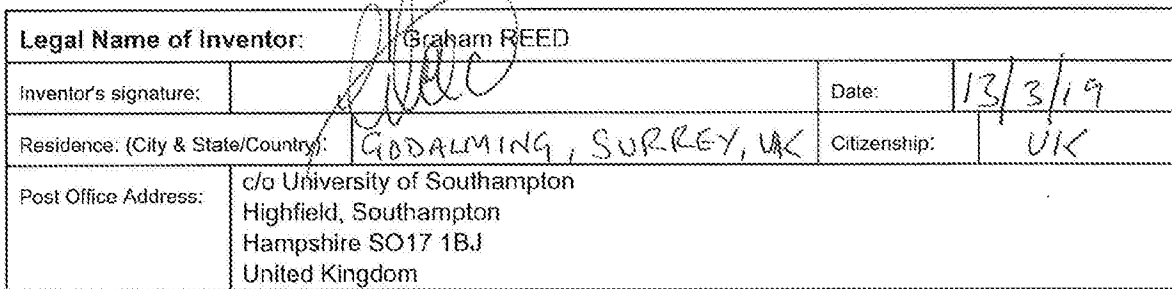 Legal Name of Inventor: Graham REED
Inventor's signature: Date: 13/3/19
Residence: (City & State/Country): GODALMING, SURREY, UK Citizenship: UK
Post Office Address: c/o University of Southampton
Highfield, Southampton
Hampshire SO17 1BJ
United Kingdom